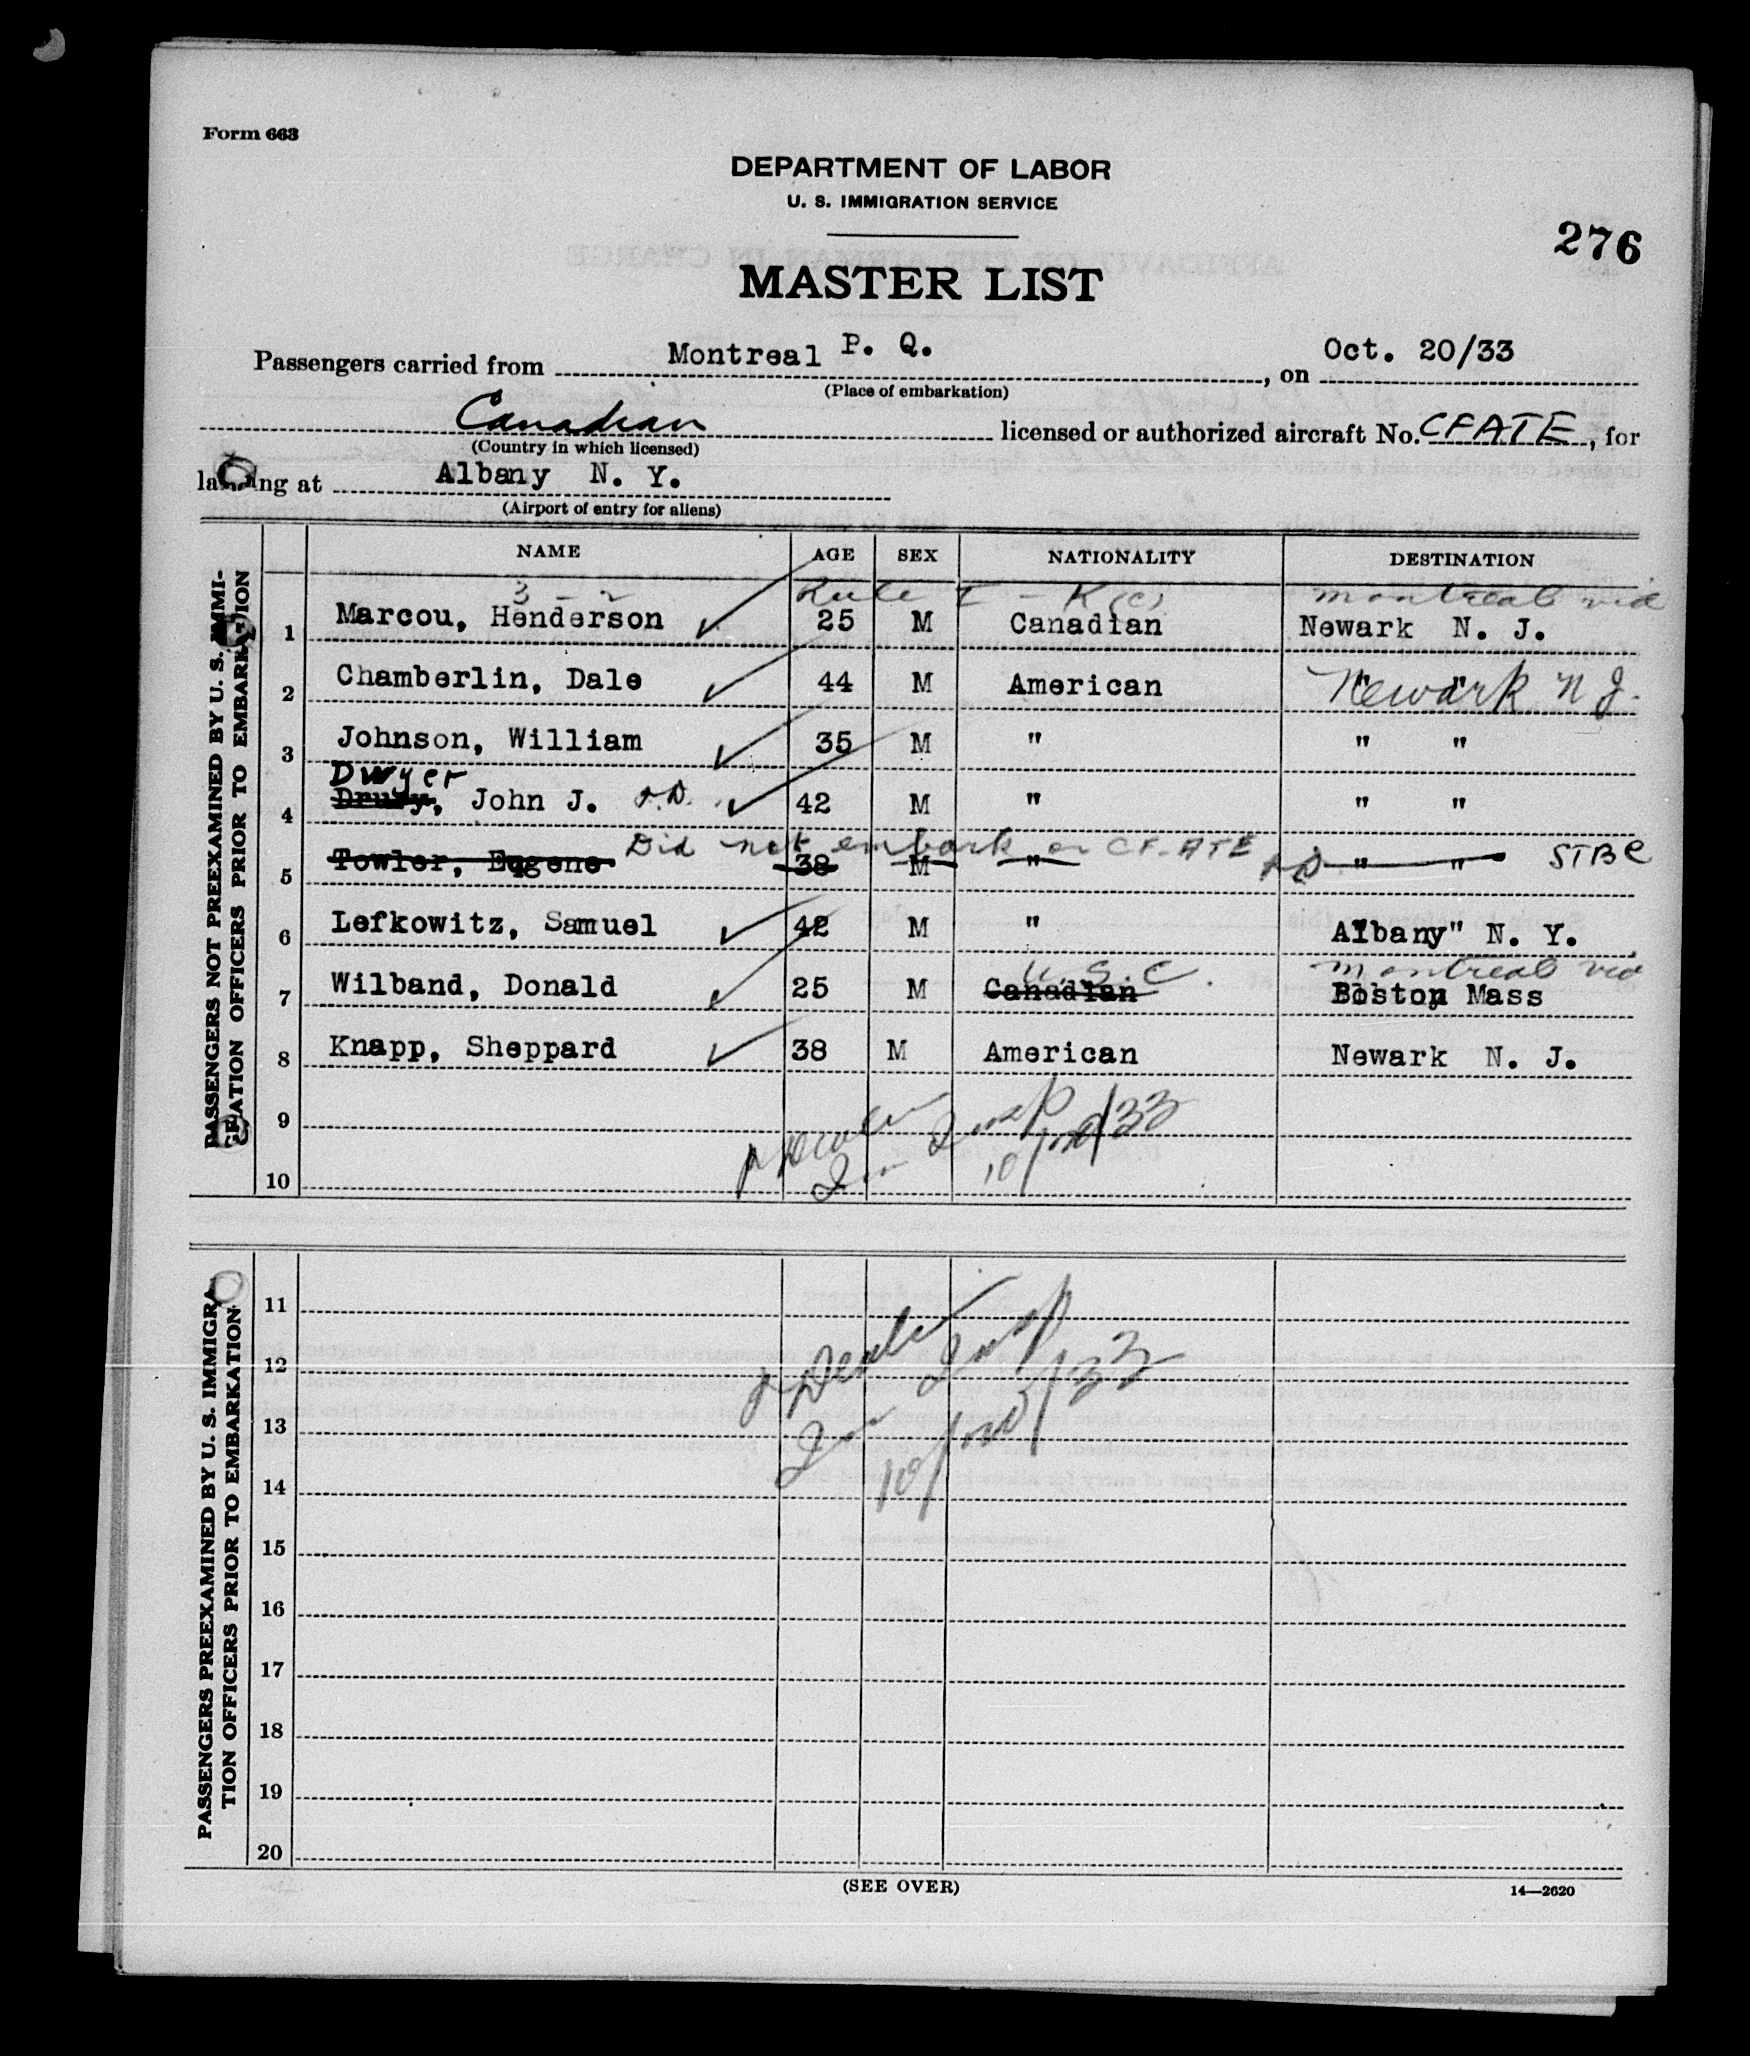 Form 663
DEPARTMENT OF LABOR
U. S. IMMIGRATION SERVICE
276
MASTER LIST
Passengers carried from Montreal P. Q., on Oct. 20/33
(Place of embarkation)
Canadian licensed or authorized aircraft No. CFATE, for
(Country in which licensed)
landing at Albany N. Y.
(Airport of entry for aliens)
PASSENGERS NOT PREEXAMINED BY U. S. IMMI-
GRATION OFFICERS PRIOR TO EMBARKATION
NAME AGE SEX NATIONALITY DESTINATION
3 - 2 Rule I - K (c) Montreal via
1 Marcou, Henderson 25 M Canadian Newark N. J.
2 Chamberlin, Dale 44 M American " " Newark N J.
3 Johnson, William 35 M " " "
Dwyer
4 Drury, John J. 42 M " " "
Did not embark on CF-ATE
5 Towler, Eugene 38 M " " " STBC
6 Lefkowitz, Samuel 42 M " Albany N. Y.
U. S. C. Montreal via
7 Wilband, Donald 25 M Canadian Boston Mass
8 Knapp, Sheppard 38 M American Newark N. J.
9
10
Imm Insp
10/20/33
PASSENGERS PREEXAMINED BY U. S. IMMIGRA-
TION OFFICERS PRIOR TO EMBARKATION
11
12
13
14
15
16
17
18
19
20
Imm Insp
10/20/33
(SEE OVER)
14—2620